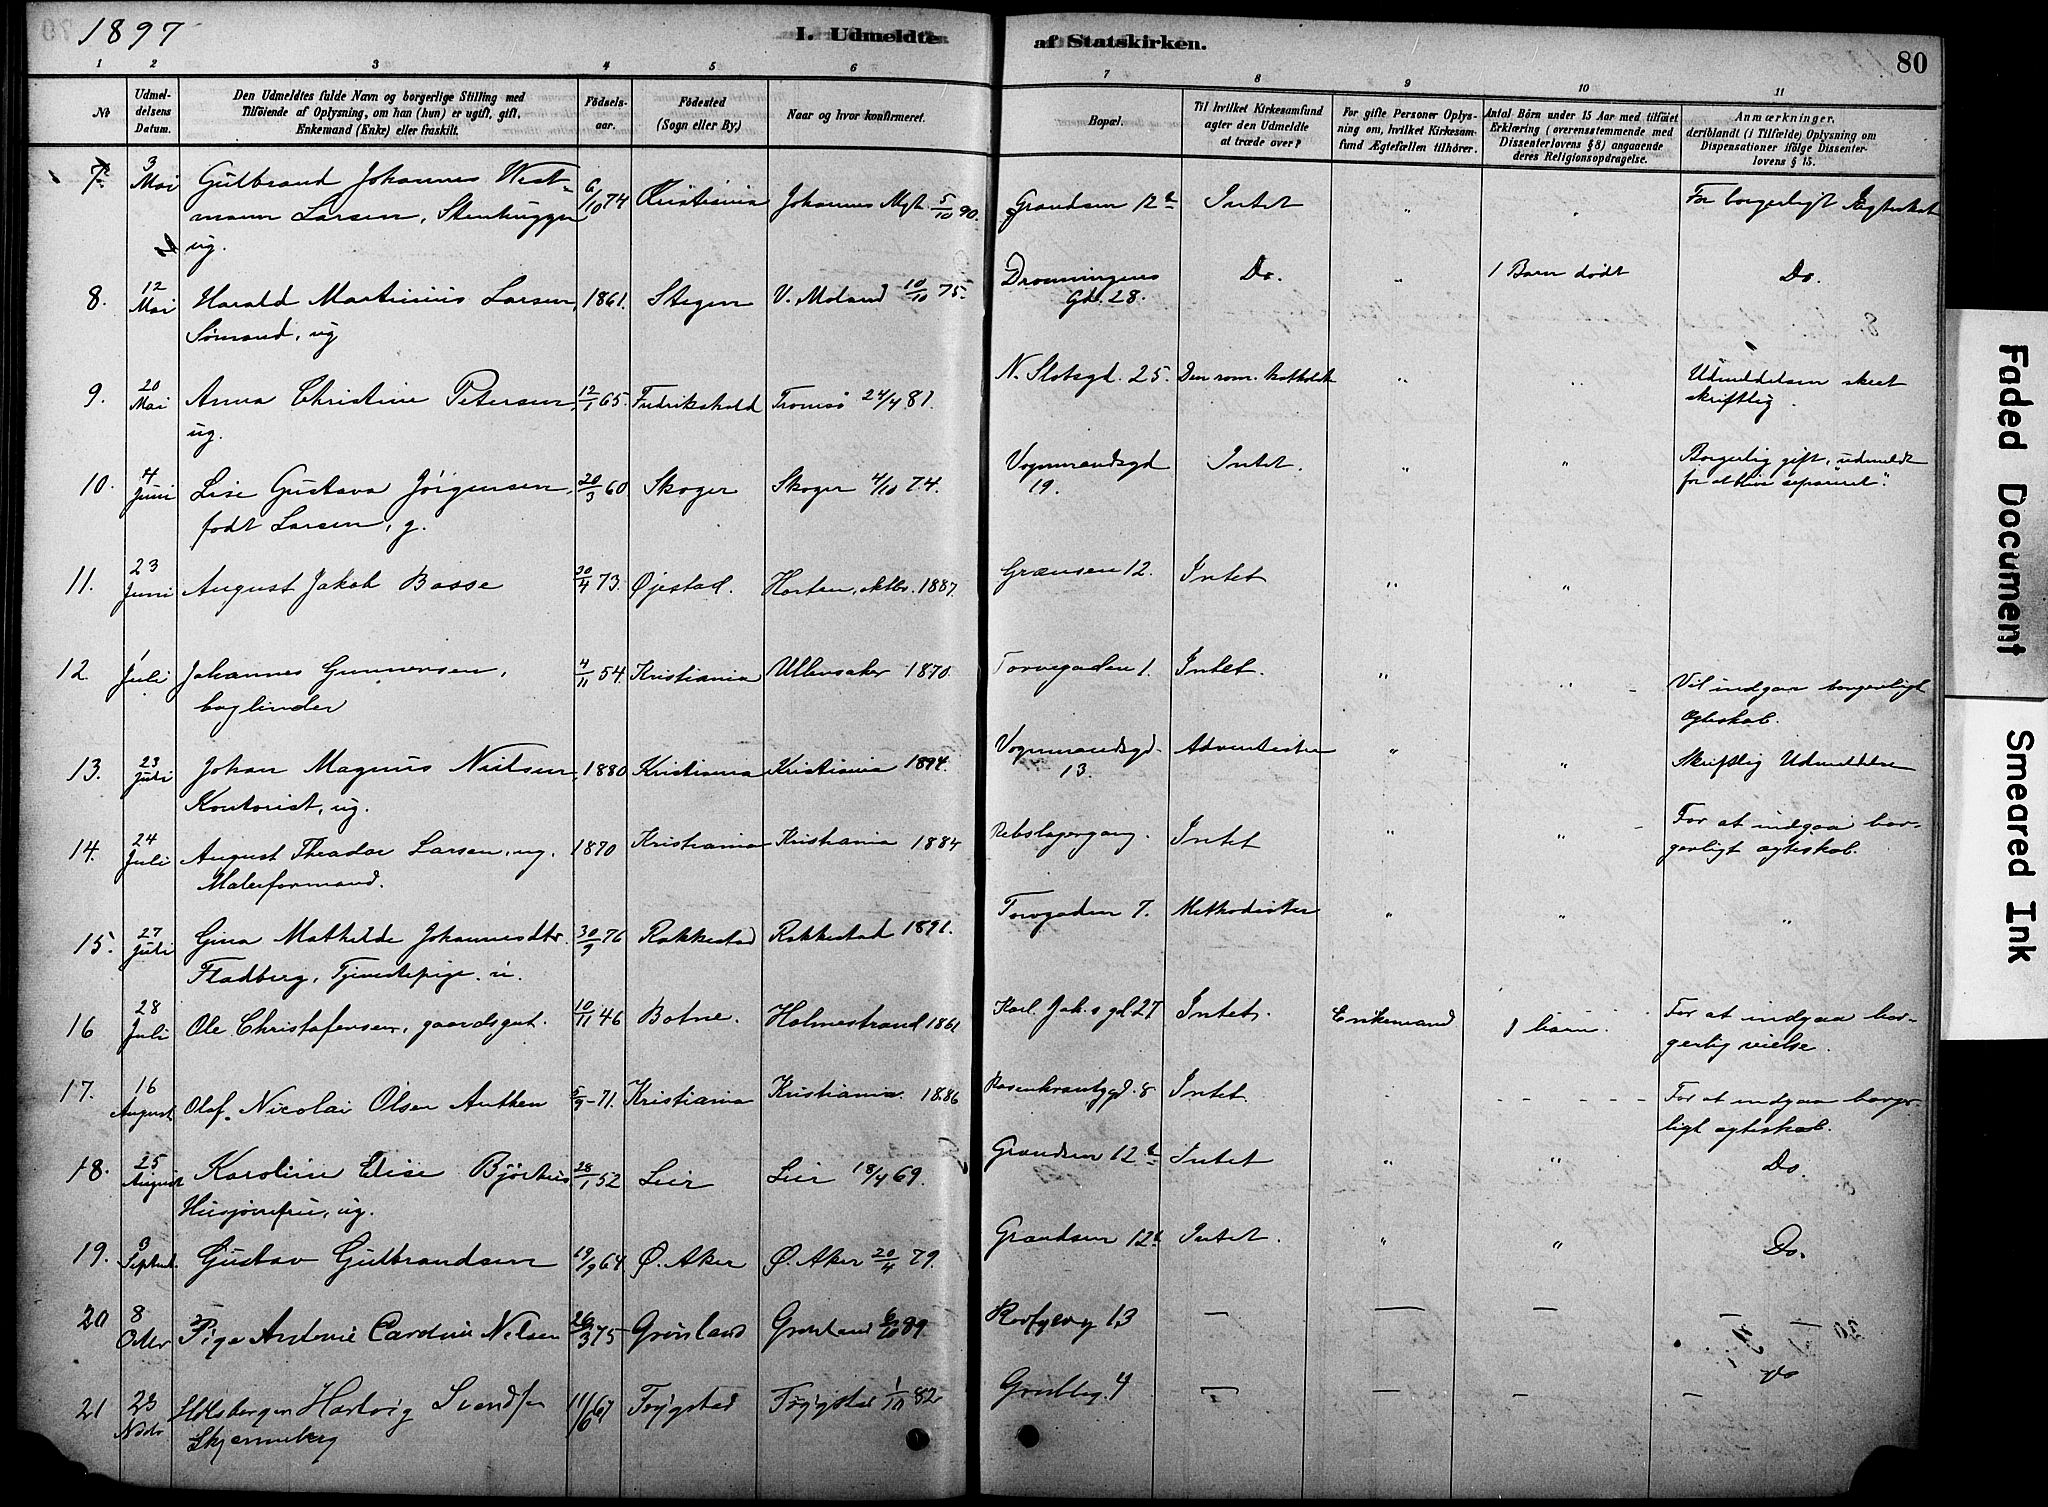 1897
I. Udmeldte af Statskirken.
80
1 2 3 4 5 6 7 8 9 10 11
No
Udmel-
delsens
Datum.
Den Udmeldtes fulde Navn og borgerlige Stilling med
Tilföiende af Oplysning, om han (hun) er ugift, gift,
Enkemand (Enke) eller fraskilt.
Födsels-
aar.
Födested
(Sogn eller By)
Naar og hvor konfirmeret.
Bopæl.
Til hvilket Kirkesamfund
agter den Udmeldte
at træde over?
For gifte Personer Oplys-
ning om, hvilket Kirkesam-
fund Ægtefællen tilhörer.
Antal Börn under 15 Aar med tilföiet
Erklæring (overensstemmende med
Dissenterlovens § 8) angaaende
deres Religionsopdragelse.
Anmærkninger,
deriblandt (i Tilfælde) Oplysning om
Dispensationer ifölge Dissenter-
lovens § 15.
7. 3 Mai Gulbrand Johannes West- 6/10 74 Kristiania Johannes Mgh. 5/10 90. Grændsen 12 b Intet " " For borgerligt Ægteskab
mann Larsen, Stenhugger
ug.
8. 12 Mai Harald Martinius Larsen, 1861. Stegen V. Moland 10/10 75. Dronningens Gd. 28. Do. " 1 Barn dödt Do.
Sömand, ug
9. 20 Mai Anna Christine Petersen, 12/1 65. Fredrikshald Tromsö 24/4 81. N. Slotsgd. 25. Den rom. katholsk " " Udmeldelsen skeet skriftlig.
ug.
10. 4 Juni Lise Gustava Jörgensen, 20/3 60 Skoger Skoger 4/10 74. Vognmandsgd 19. Intet. " " Borgerlig gift, "udmeldt for at blive separeret".
födt Larsen, g.
11. 23 Juni August Jakob Basse 30/4 73. Øjestad. Horten, oktbr. 1887. Grænsen 12. Intet " "
12. 1 Juli Johannes Gunnersen, 4/11 54. Kristiania Ullensaker 1870. Torvegaden 1. Intet. " " Vil indgaa borgerligt ægteskab.
13. 23 Juli Johan Magnus Nielsen 1880 Kristiania Kristiania 1894. Vognmandsgd. 13. Adventister " " Skriftlig Udmeldelse
Kontorist, ug.
14. 24 Juli August Theodor Larsen, ug. 1870 Kristiania Kristiania 1884 Rebslagergang. Intet " " For at indgaa bor-
gerligt ægteskab.
Malerformand.
15. 27 Juli Gina Mathilde Johannesdtr. 30/9 76 Rakkestad Rakkestad 1891. Torvgaden 7. Methodister " " "
Fladberg, Tjenestepige. u.
16 28 Juli Ole Christofersen, gaardsgut. 10/11 46 Botne. Holmestrand 1861 Karl Joh.s gd 27 Intet. Enkemand 1 barn. For at indgaa bor-
gerlig vielse.
17. 16 August Olaf Nicolai Olsen 5/9 71. Kristiania Kristiania 1886 Rosenkrantzgd. 8 Intet. For at indgaa borger-
ligt ægteskab.
18. 25 August Karoline Elise 28/1 52 Lier Lier 18/4 69. Grændsen 12 b Intet " " Do.
Husjomfru, ug.
19. 3 Septbr. Gustav Gulbrandsen 19/9 64 Ø. Aker Ø. Aker 20/4 79. Grændsen 12b Intet. " " Do.
20 8 Octbr Pige Antonie Caroline Nilsen 26/3 75 Grönland Grönland 6/10 89. 13 — — — —
21 23 Novbr Hartvig Svendsen 11/6 67 Trygstad Trygstad 1/10 82 4 — — — — Do
Skjenneberg
Faded Document
Smeared Ink